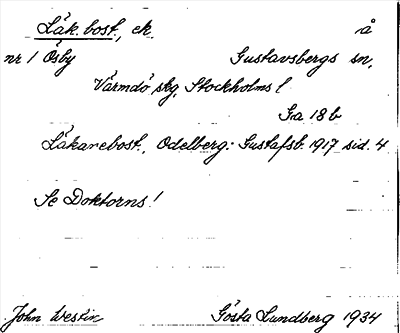 Läk. bost., ek. å
nr 1 Ösby Gustavsbergs sn,
Värmdö skg, Stockholms l
Ga 18b
Läkarebost., Odelberg: Gustafsb. 1917 sid. 4
Se Doktorns!
John Westin Gösta Lundberg 1934